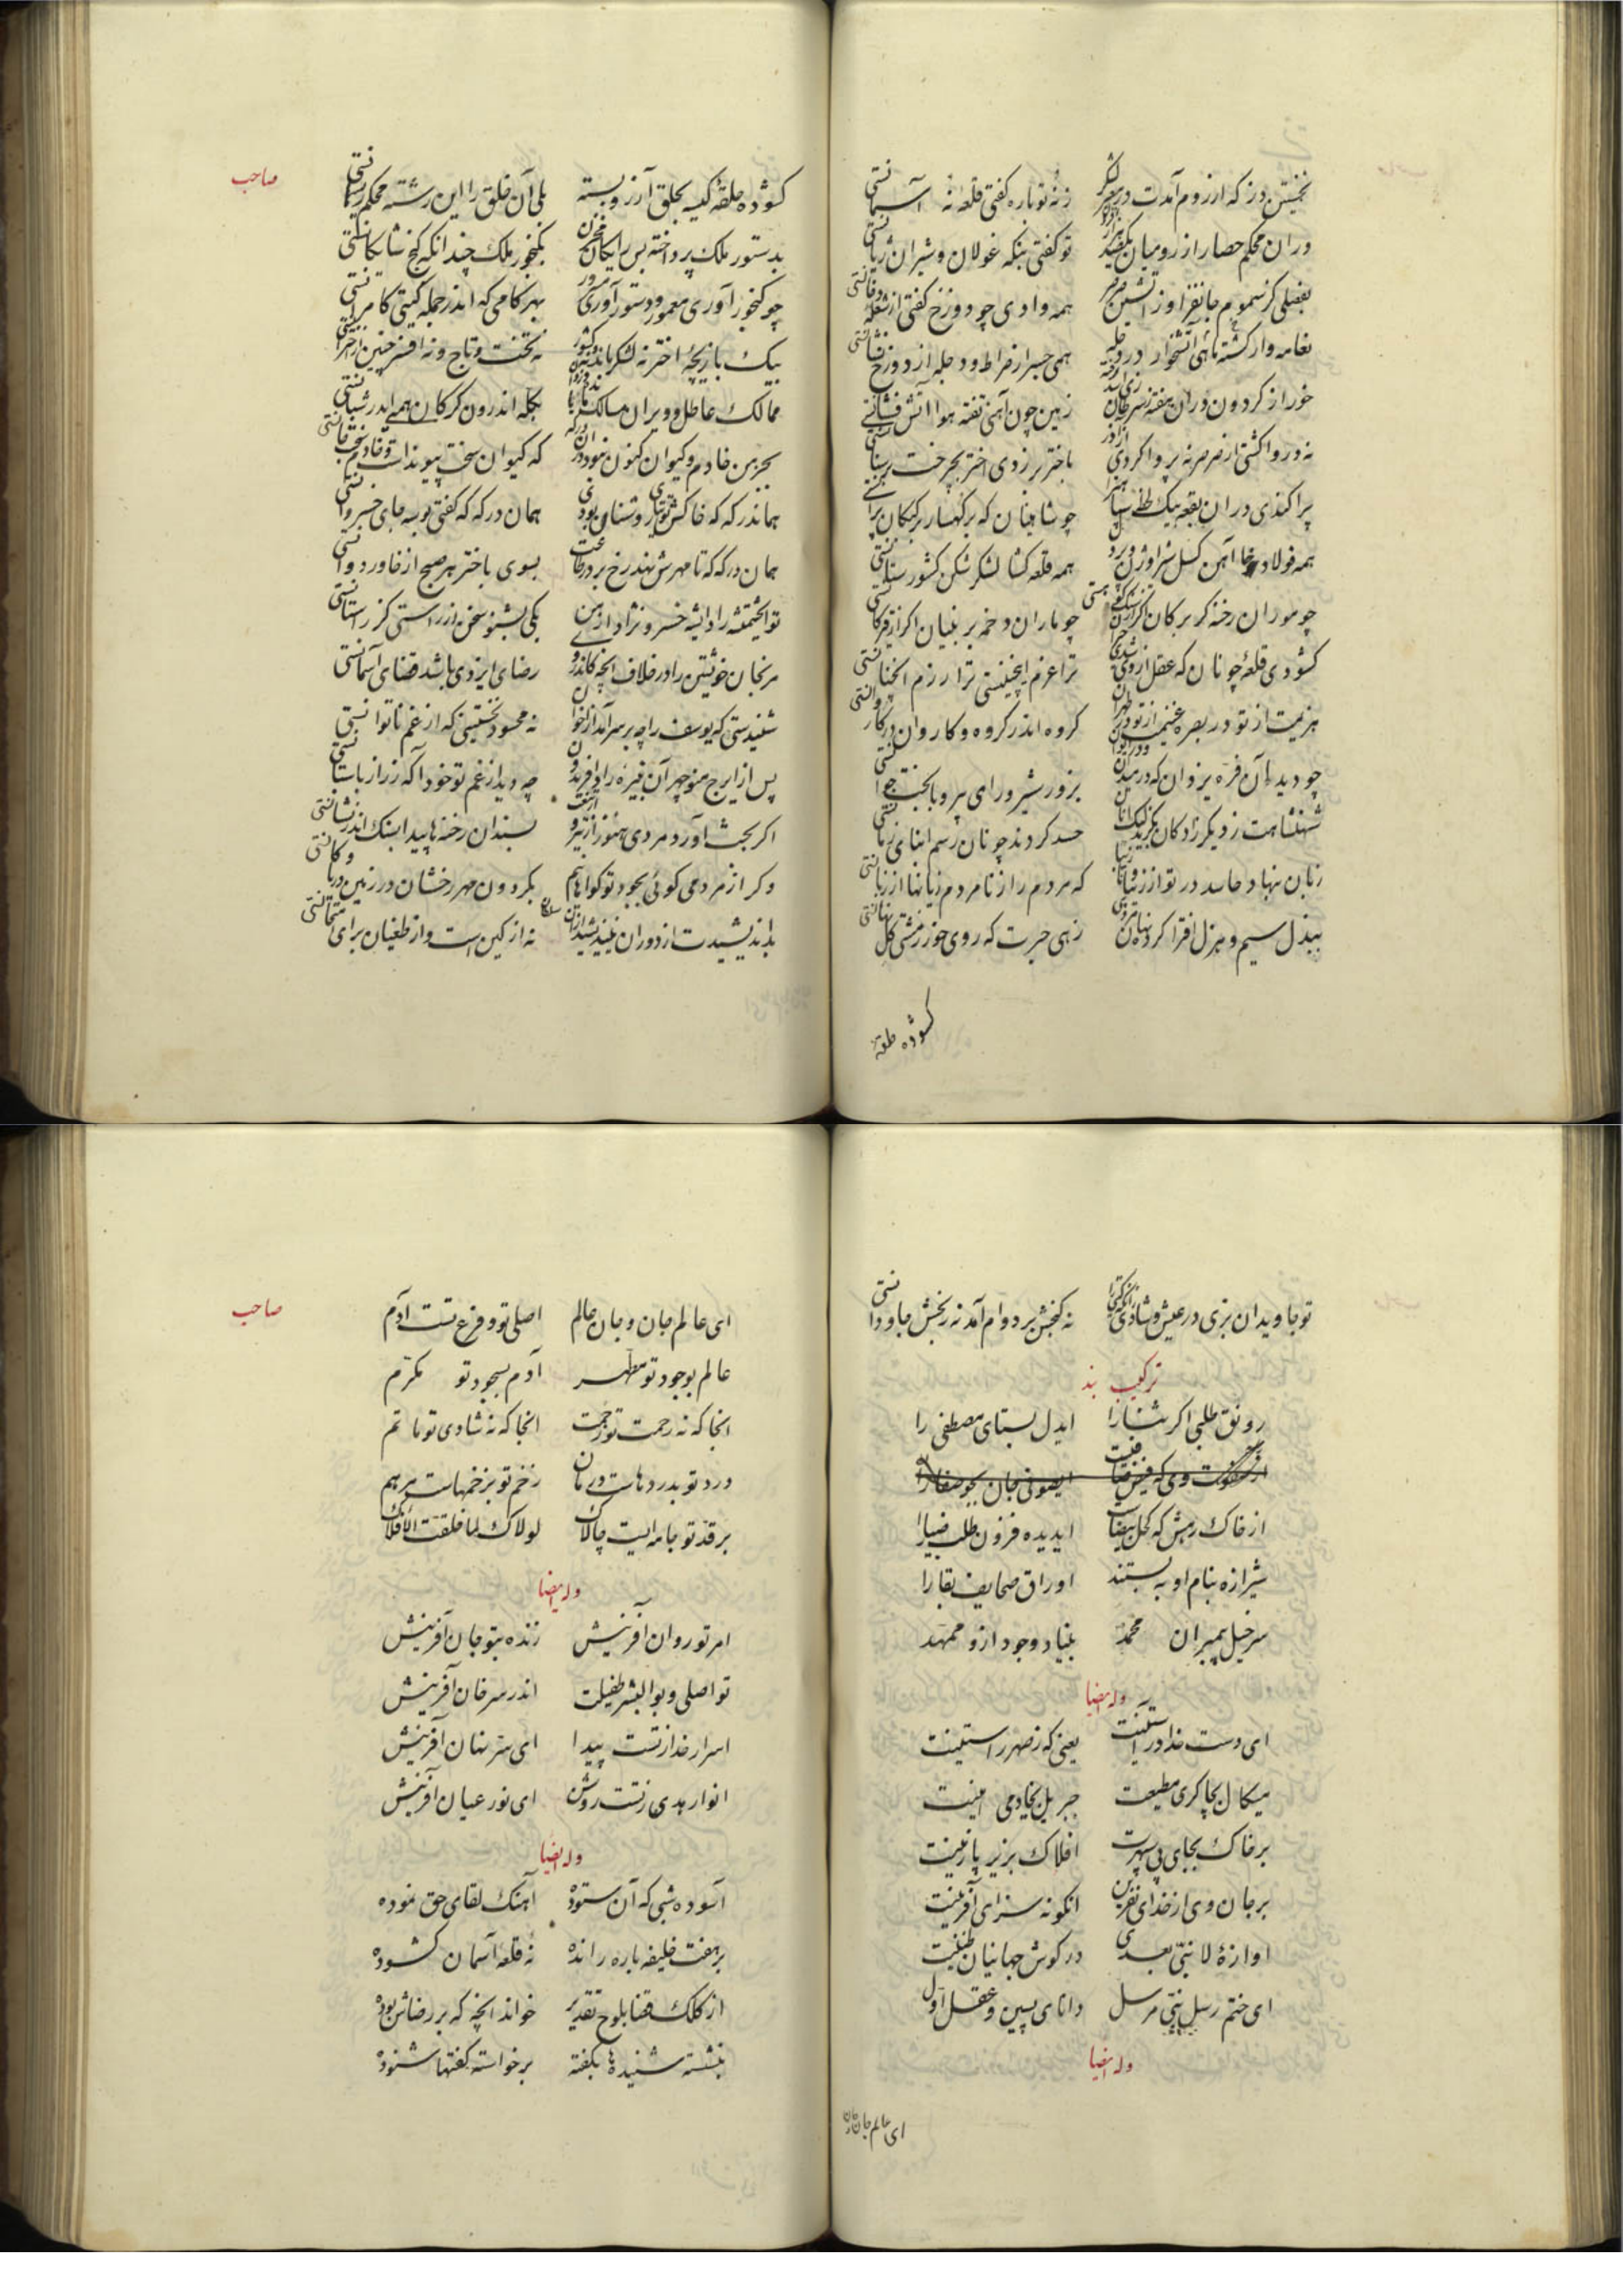 نخستین دز که از روم آمدت در زیر لشکر
ز نه تو باره گفتی قلعهٔ نه آسمانستی
در ان محکم حصار از رومیان
تو گفتی بنگه غولان و شیران ژیانستی
بفصلی کز سموم جانفزا وز آتشین صرصر
همه وادی چو دوزخ گفتی از شعله دخانستی
نعامه وار گشته ماهی آتشخوار در دجله
همی جسر از صراط و دجله از دوزخ نشانستی
خور از گردون دران هفته
زمین چون آهنی تفته هوا آتش فشانستی
نه در وا گشتی از صرصر نه پروا کردی از آذر
باختر بر زدی اختر بچرخت بر سنانستی
پراکندی دران بقعه بیک لحظه سپاه
چو شاهینان که بر کهسار بر کبکان پرانستی
همه فولاد خا آهن گسل شیر اوژن و پر دل
همه قلعه گشا لشکر شکن کشور ستانستی
چو موران رخنه گر بر کان
چو ماران دخمه بر بنیان اگر از
گشودی قلعهٔ چونان که عقل از روی
ترا عزم اینچنینستی ترا رزم آنچنانستی
هزیمت از تو در بصره غنیمت از تو در طهران
گروه اندر گروه و کاروان در کاروانستی
چو دید آن فره یزدان که در
بزور شیر و رای پیر و با بخت جوانستی
شهنشاهت ز دیگر زادگان بگزید
حسد کردند چونان رسم ابنای زمانستی
زبان بنهاد حاسد در تو از
که مردم را ز نامردم زیانها از زبانستی
ببذل سیم و بزل افترا کردند
زهی حیرت که روی خور ز مشتی گل نهانستی
گشوده حلقهٔ

صاحب
گشوده حلقهٔ کیسه بحلق آرزو بسته
بلی آن خلق را این رشته محکم ریسمانستی
بدستور ملک پرداخته بس
بگنجور ملک چندانکه گنج شایگانستی
چو گنجور آوری معمور و دستور آوری
بهر کامی که اندر جمله گیتی کامرانستی
بیک بازیچهٔ اختر نه لشکر ماند و نه کشور
نه تخت و تاج و نه افسر چنین
ممالک عاطل و ویران مسالک
بگله اندرون گرگان همه اندر شبانستی
بجز من خادم و کیوان کنون
که کیوان سخت پیوند است و خادم
همان درگه که خاکش توتیای روشنان بودی
همان درگه که گفتی بوسه جای خسروانستی
همان درگه که تا مهرش نهد رخ بر در طاعت
بسوی باختر هر صبح از خاور دوانستی
تو ای حشمتشه راد ای شه خسرو نژاد از من
یکی بشنو سخن نز راستی کز راستانستی
مرنجان خویشتن را در خلاف آنچه کاندر وی
رضای ایزدی باشد قضای آسمانستی
شنیدستی که یوسف را چه بر سر آمد از اخوان
نه محسود نخستینی که از غم ناتوانستی
پس از ایرج منوچهر آن نبیره راد افریدون
چه دید از غم تو خود آگه ز راز باستانستی
اگر بخت آورد مردی هنوز از
بسندان رخنه ها پیدا اینک اندر نشانستی
و گر از مردمی گوئی بجود تو گواها نیم
بگردون مهر رخشان در زمین دریا و کانستی
بداندیشیدت از دوران نیندیشید
نه از کین است و از طغیان برای امتحانستی

تو جاویدان بزی در عیش و شادی
نه گنجش بر دوام آمد نه رنجش جاودانستی
ترکیب بند
رونق طلبی اگر ثنا را
ایدل بستای مصطفی را
ایصوفی جان بجو صفا را
از خاک رهش که کحل بیضاست
ایدیده فزون طلب ضیا را
شیرازه بنام او به بستند
اوراق صحایف بقا را
سر خیل پیمبران محمد
بنیاد وجود ازو ممهد
وله ایضا
ای دست خدا در آستینت
یعنی که ز صهر راستینت
میکال بچاکری مطیعت
جبریل بخادمی امینت
بر خاک بجای پی سپهرت
افلاک بزیر پا زمینت
بر جان وی از خدای نفرین
انکو نه سزای آفرینت
اوازهٔ لا نبی بعدی
در گوش جهانیان طنینت
ای ختم رسل نبی مرسل
دانای پسین و عقل اول
وله ایضا
ای عالم جان و جان

صاحب
ای عالم جان و جان عالم
اصلی تو و فرع تست آدم
عالم بوجود تو مطهر
آدم بسجود تو مکرم
انجا که نه رحمت تو زحمت
انجا که نه شادی تو ماتم
درد تو بدردهاست درمان
زخم تو بزخمهاست مرهم
بر قد تو جامه ایست چالاک
لولاک لما خلقت الافلاک
وله ایضا
امر تو روان آفرینش
زنده بتو جان آفرینش
تو اصلی و بوالبشر طفیلت
اندر سر خان آفرینش
اسرار خدا ز تست پیدا
ای سر نهان آفرینش
انوار هدی ز تست روشن
ای نور عیان آفرینش
وله ایضا
آسوده شبی که آن ستوده
آهنگ لقای حق نموده
بر هفت خلیفه باره رانده
نه قلعهٔ آسمان گشوده
از کلک قضا بلوح تقدیر
خواند انچه که بر رضاش بوده
بنشسته شنیده ها بگفته
برخواسته گفتها شنوده